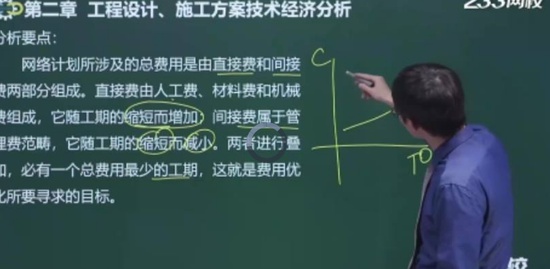 233网校
第二章 工程设计、施工方案技术经济分析
分析要点：
网络计划所涉及的总费用是由直接费和间接
费两部分组成。直接费由人工费、材料费和机械
费组成，它随工期的缩短而增加；间接费属于管
理费范畴，它随工期的缩短而减小。两者进行叠
加，必有一个总费用最少的工期，这就是费用优
化所要寻求的目标。
C
T